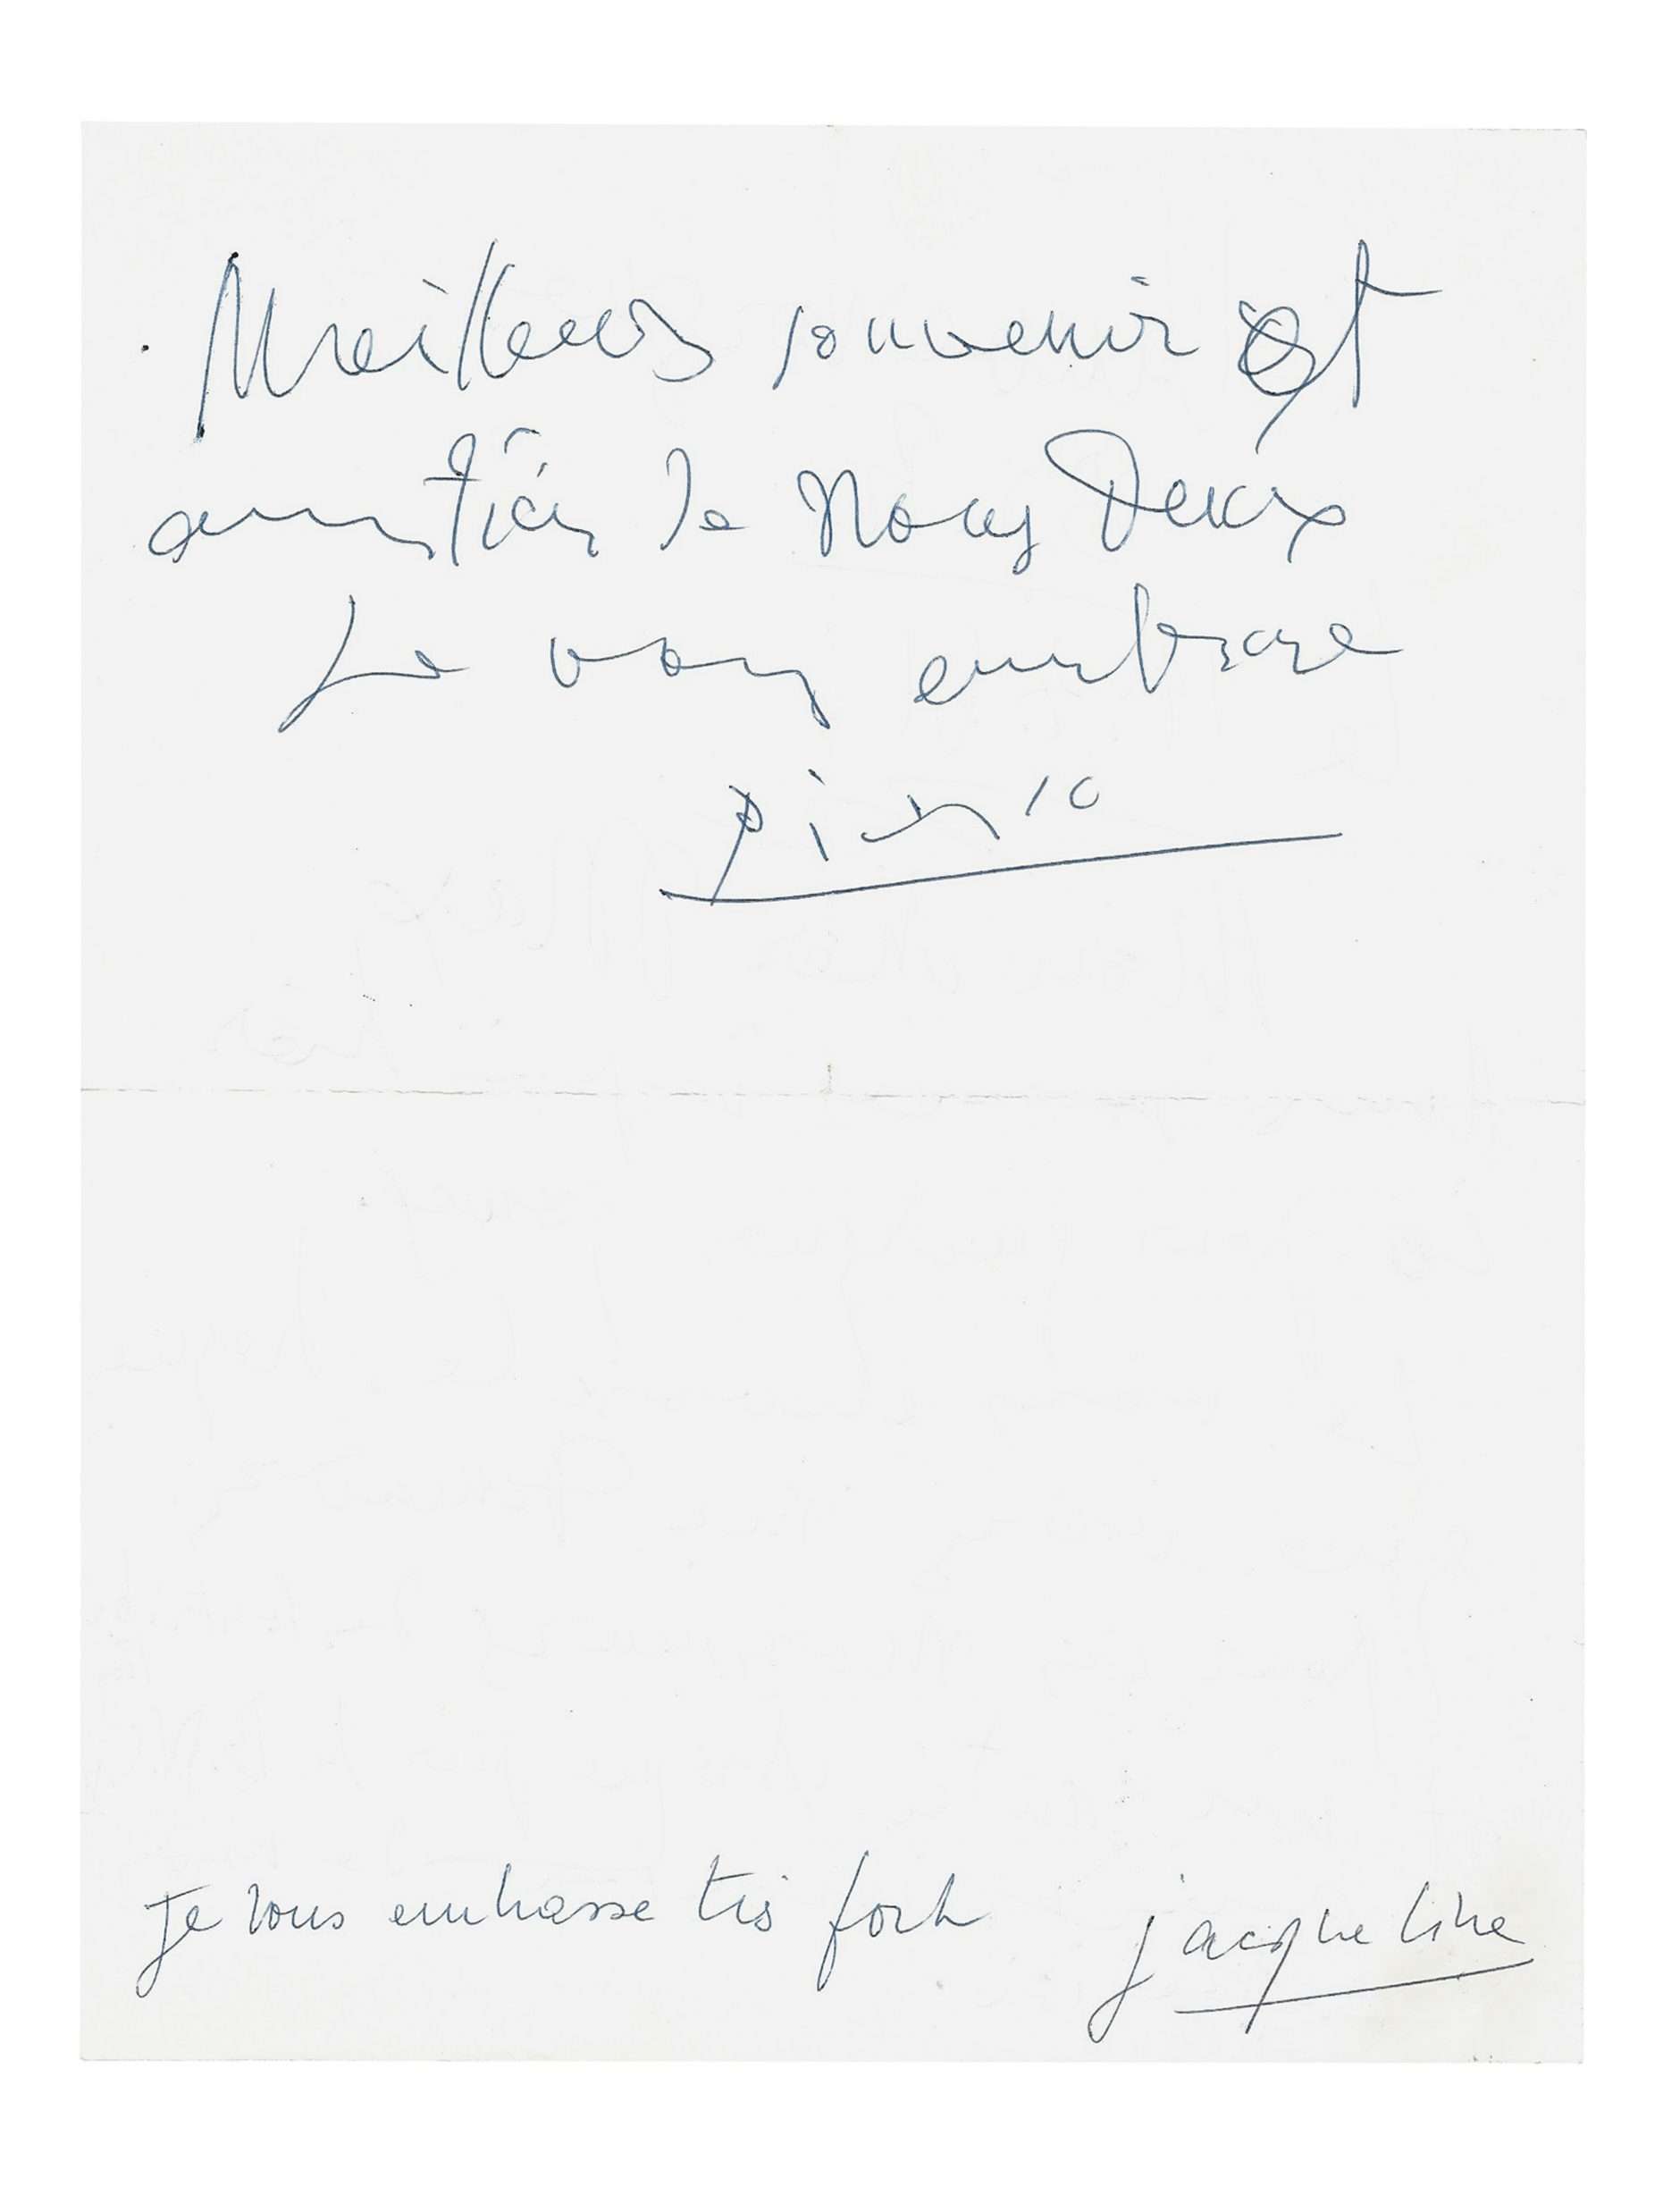 Meilleurs souvenir et
amitiés de Nous Deux
Je vous embrase
Picasso
Je vous embrasse très fort jacqueline